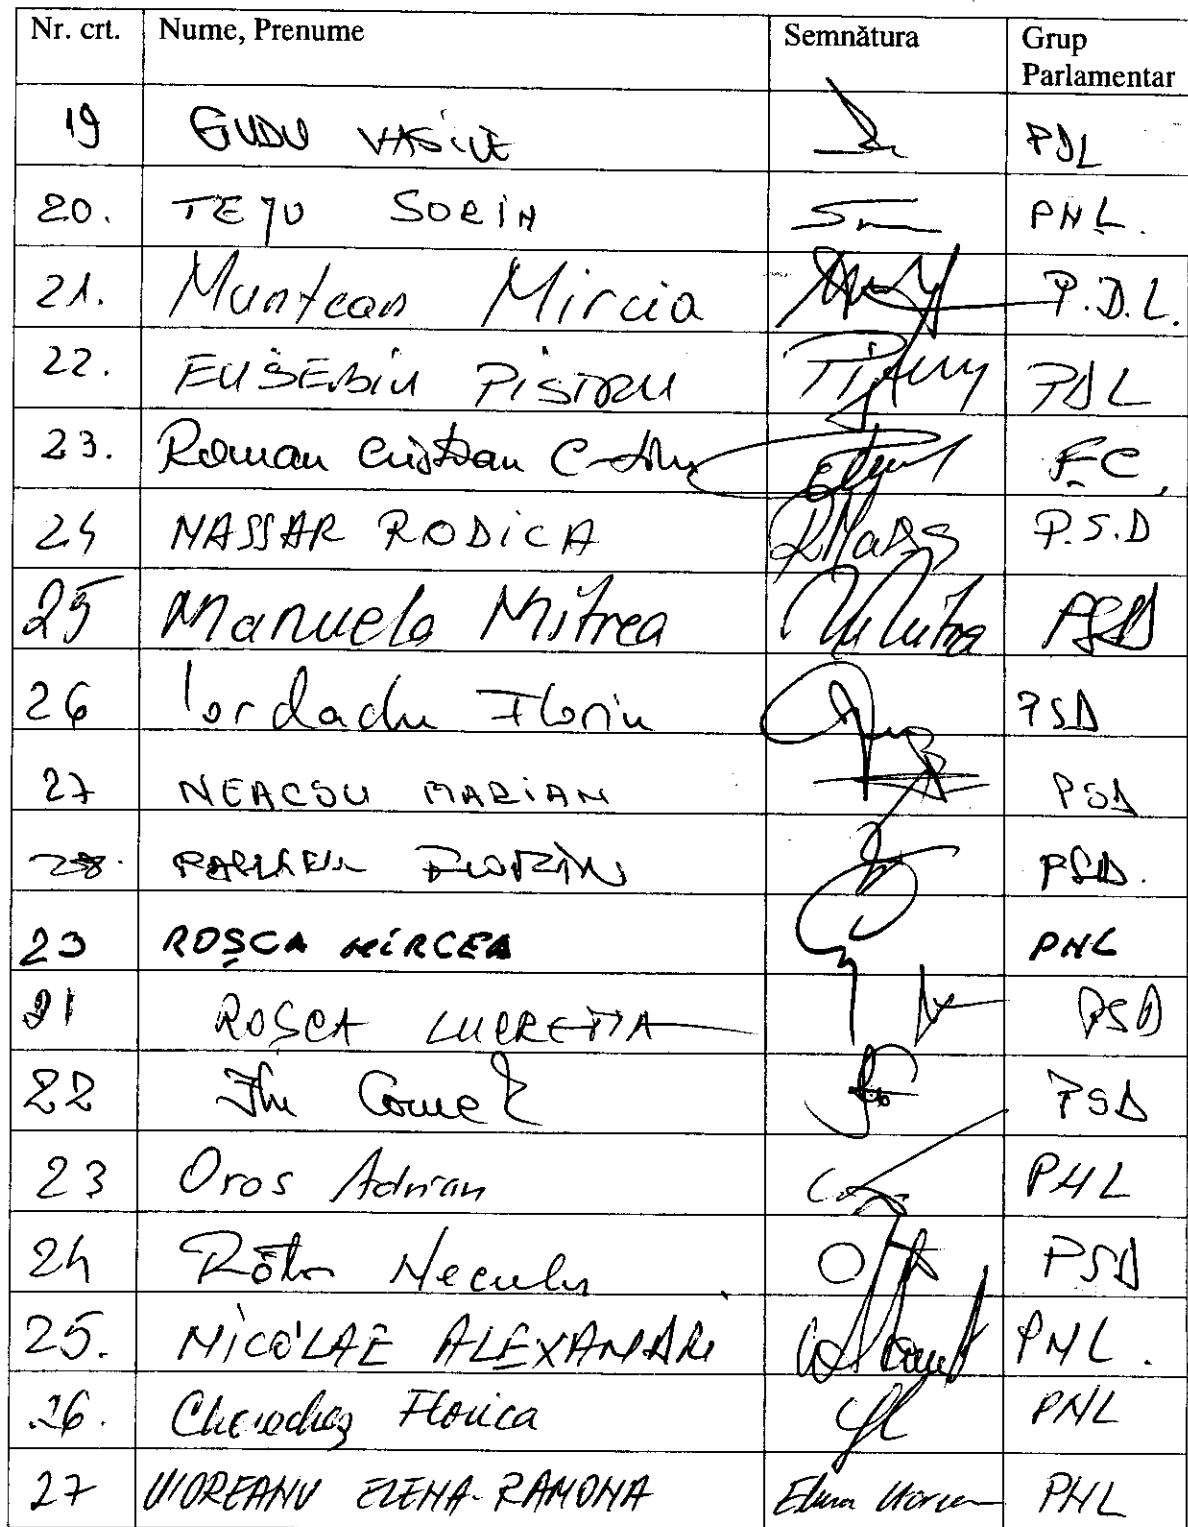 Nr. crt. Nume, Prenume Semnătura Grup Parlamentar
19 GUDU VASILE PDL
20. TEJU SORIN PNL.
21. Muntean Mircia P.D.L.
22. EUSEBIU PISTRU PDL
23. Roman Cristian FC
24 NASSAR RODICA RNass P.S.D
25 Manuela Mitrea MMitrea PSD
26 Iordache Florin PSD
27 NEACSU MARIAN PSD
28. FLORIN PSD.
23 ROȘCA MIRCEA PNL
21 ROȘCA LUCREȚIA PSD
22 Cornel PSD
23 Oros Adrian PNL
24 Neculai PSD
25. NICOLAE ALEXANDRI PNL.
26. Cherecheș Florica PNL
27 UIOREANU ELENA-RAMONA Elena PNL